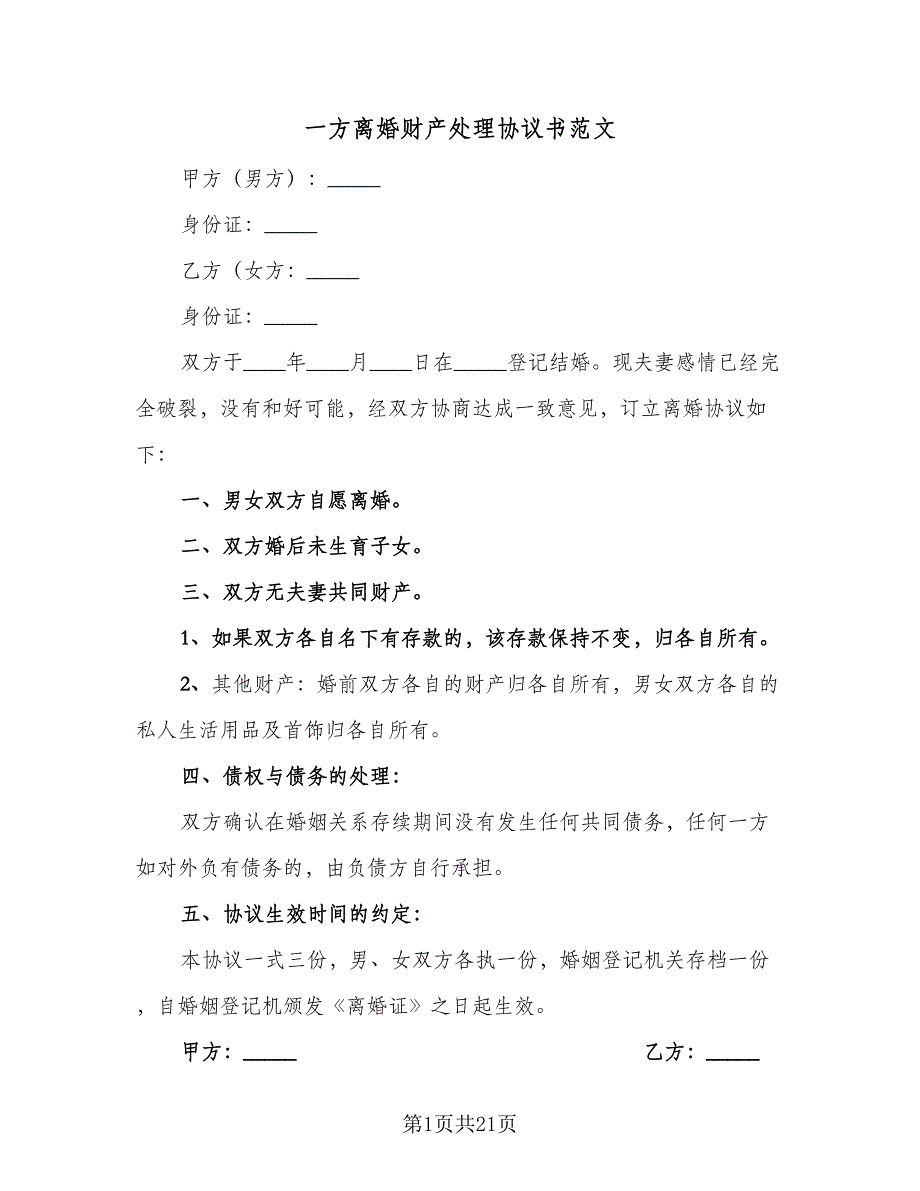 一方离婚财产处理协议书范文
甲方（男方）：_____
身份证：_____
乙方（女方：_____
身份证：_____
双方于____年____月____日在_____登记结婚。现夫妻感情已经完
全破裂，没有和好可能，经双方协商达成一致意见，订立离婚协议如
下：
一、男女双方自愿离婚。
二、双方婚后未生育子女。
三、双方无夫妻共同财产。
1、如果双方各自名下有存款的，该存款保持不变，归各自所有。
2、其他财产：婚前双方各自的财产归各自所有，男女双方各自的
私人生活用品及首饰归各自所有。
四、债权与债务的处理：
双方确认在婚姻关系存续期间没有发生任何共同债务，任何一方
如对外负有债务的，由负债方自行承担。
五、协议生效时间的约定：
本协议一式三份，男、女双方各执一份，婚姻登记机关存档一份
，自婚姻登记机颁发《离婚证》之日起生效。
甲方：_____ 乙方：_____
第1页共21页